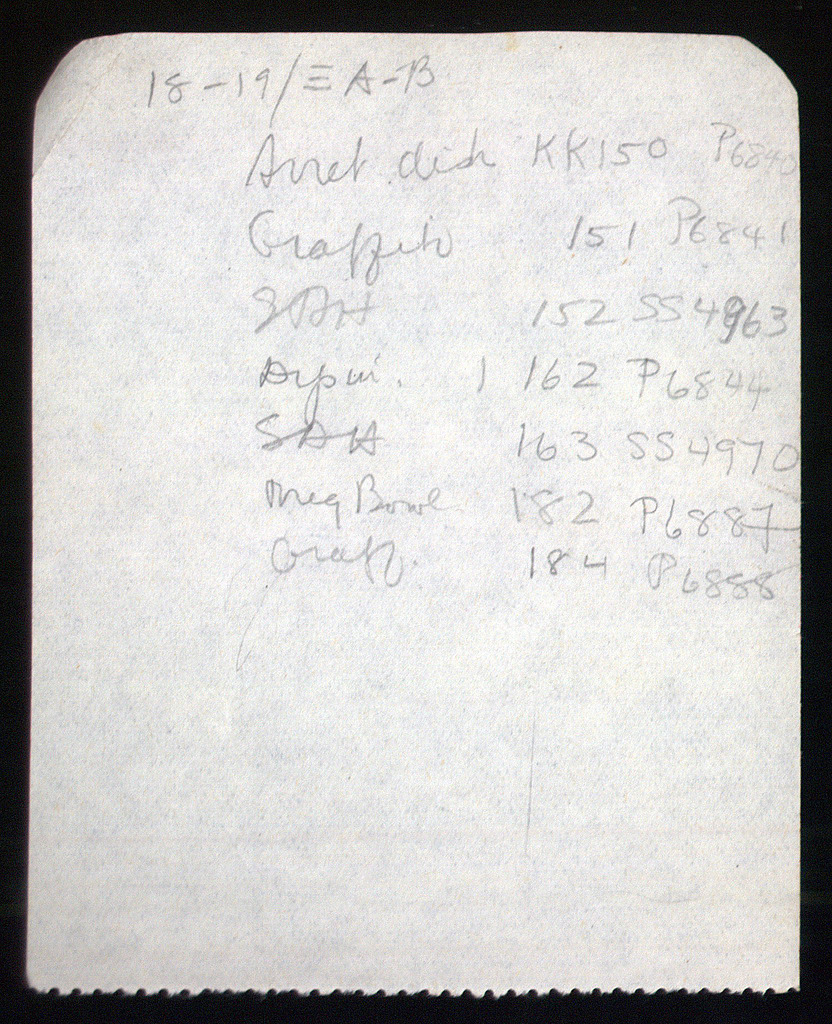 18-19/Ξ A-B
dish KK150 P6840
Graffito 151 P6841
SAH 152 SS4963
1 162 P6844
SAH 163 SS4970
Meg Bowl 182 P6887
Graff. 184 P6888